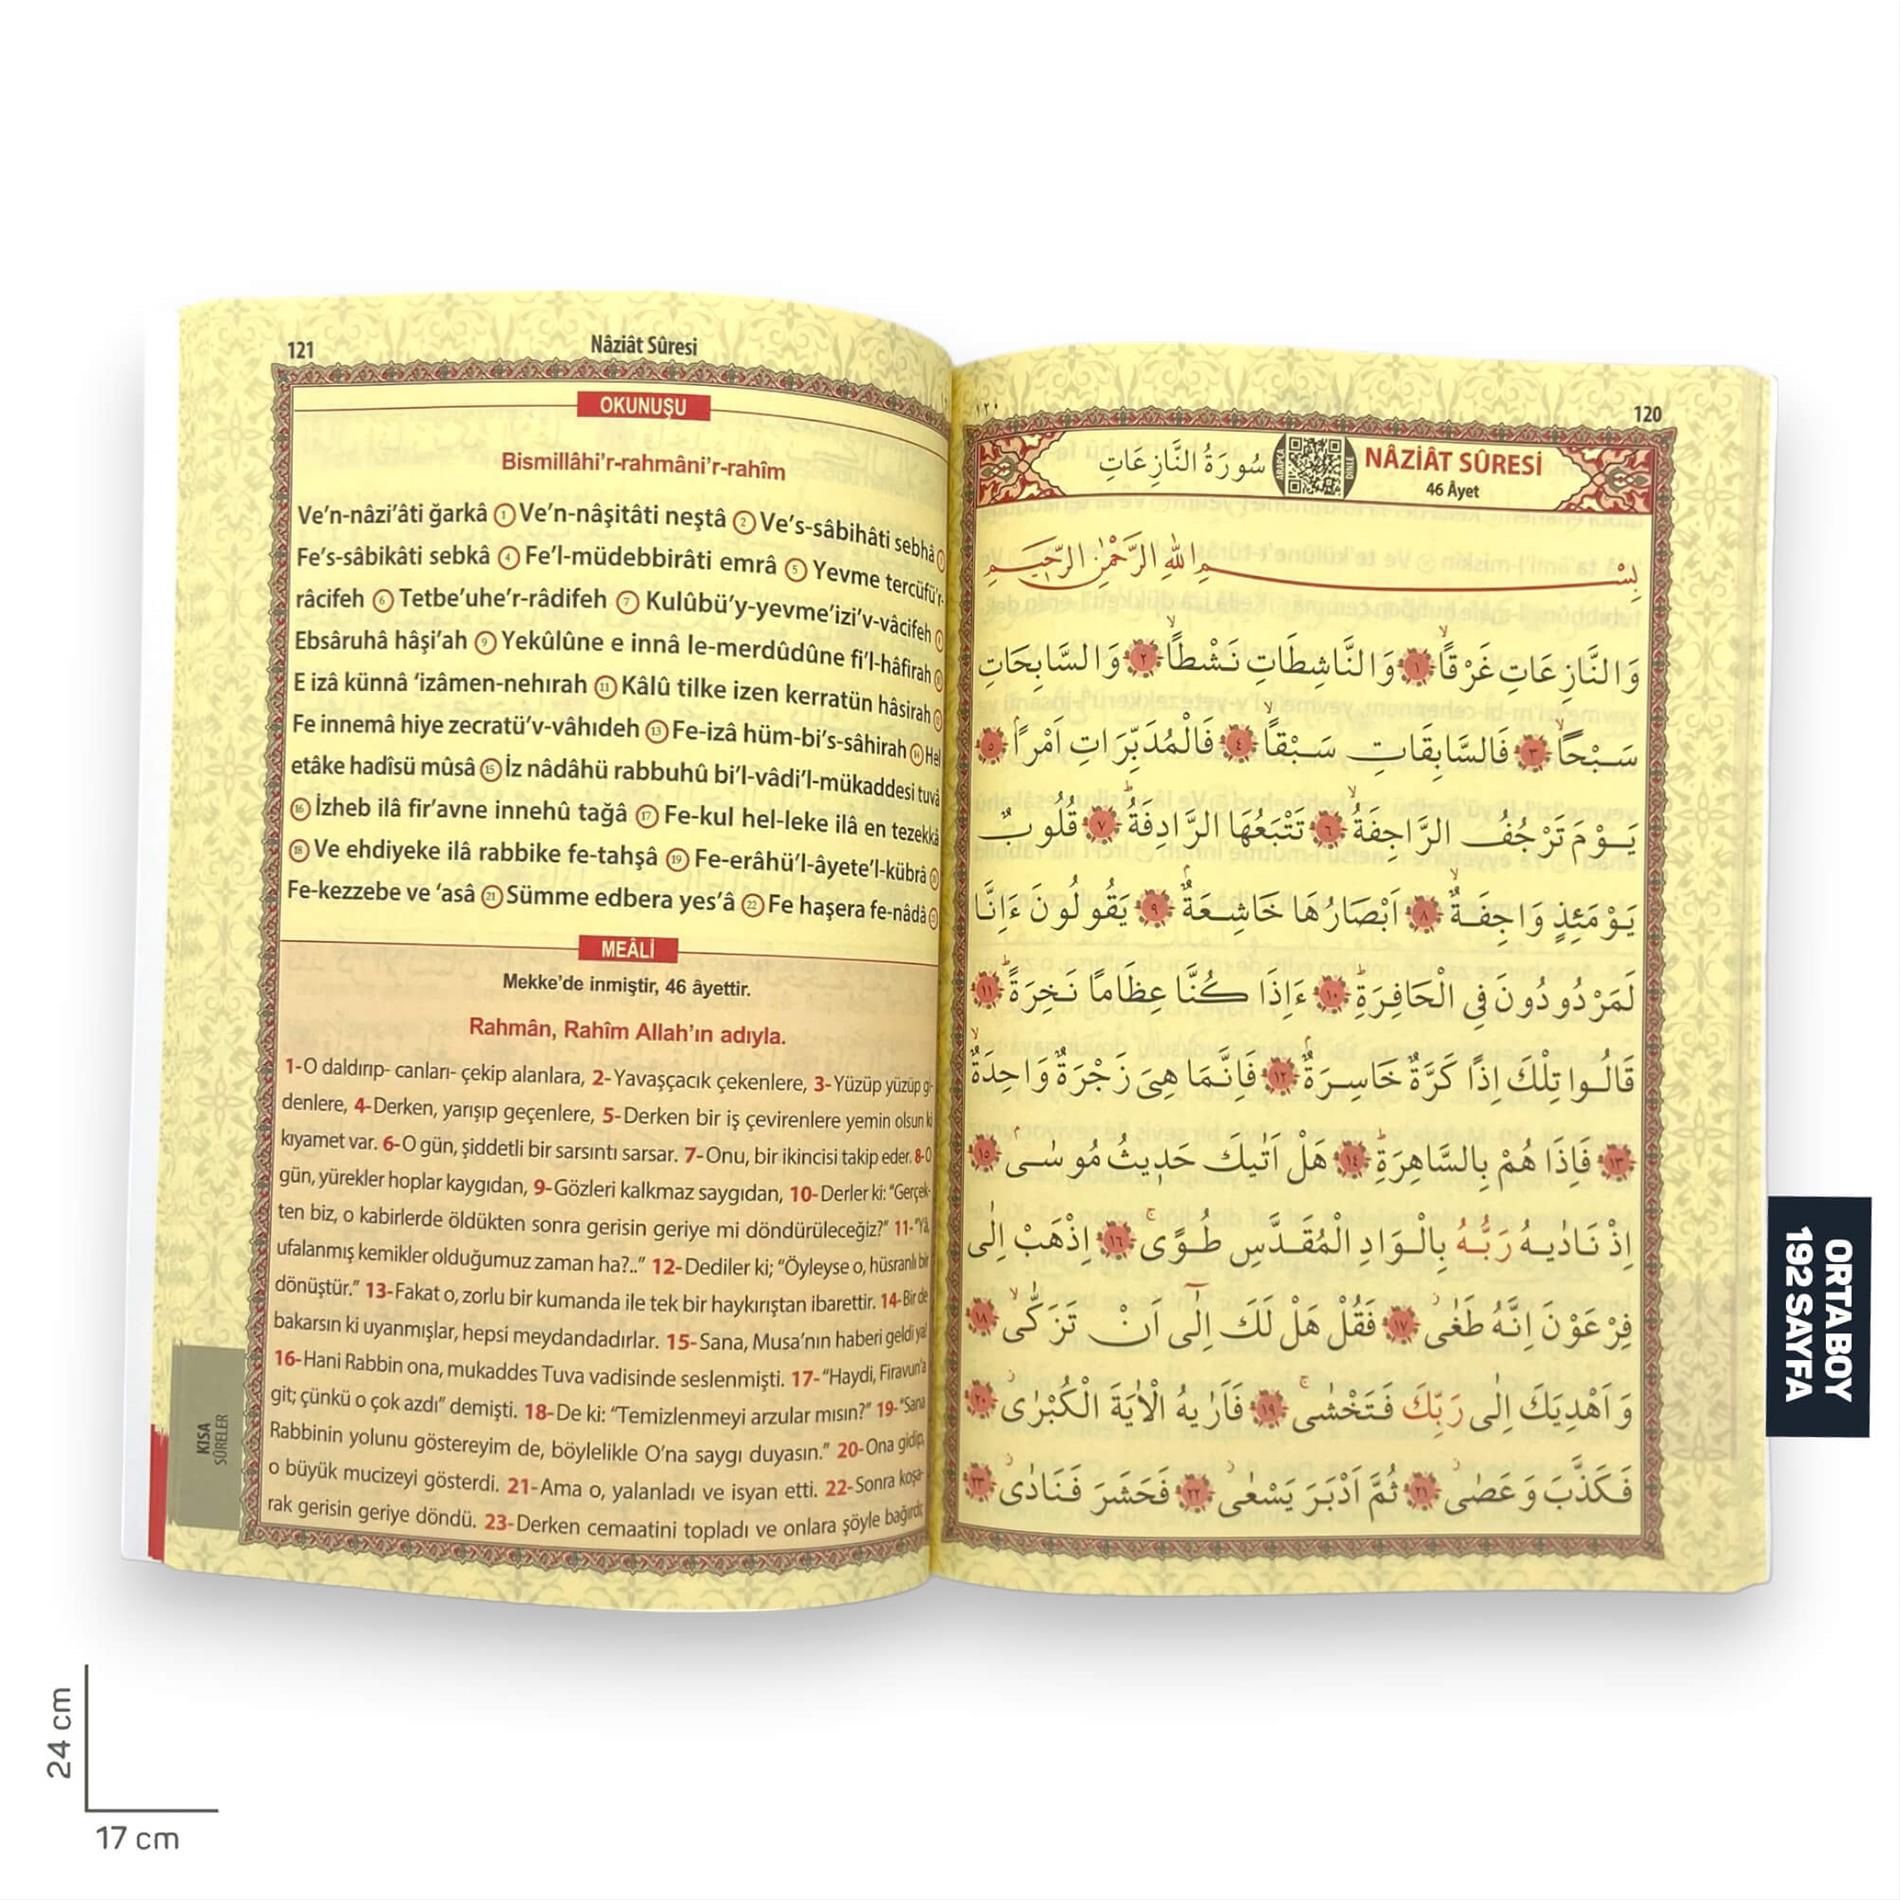 121
Nâziât Sûresi
OKUNUŞU
Bismillâhi’r-rahmâni’r-rahîm
Ve’n-nâzi’âti ğarkâ ① Ve’n-nâşitâti neştâ ② Ve’s-sâbihâti sebhâ
Fe’s-sâbikâti sebkâ ④ Fe’l-müdebbirâti emrâ ⑤ Yevme tercüfü’r-
râcifeh ⑥ Tetbe’uhe’r-râdifeh ⑦ Kulûbü’y-yevme’izi’v-vâcifeh
Ebsâruhâ hâşi’ah ⑨ Yekûlûne e innâ le-merdûdûne fi’l-hâfirah
E izâ künnâ ‘izâmen-nehırah ⑪ Kâlû tilke izen kerratün hâsirah
Fe innemâ hiye zecratü’v-vâhıdeh ⑬ Fe-izâ hüm-bi’s-sâhirah ⑭ Hel
etâke hadîsü mûsâ ⑮ İz nâdâhü rabbuhû bi’l-vâdi’l-mükaddesi tuvâ
⑯ İzheb ilâ fir’avne innehû tağâ ⑰ Fe-kul hel-leke ilâ en tezekkâ
⑱ Ve ehdiyeke ilâ rabbike fe-tahşâ ⑲ Fe-erâhü’l-âyete’l-kübrâ
Fe-kezzebe ve ‘asâ ㉑ Sümme edbera yes’â ㉒ Fe haşera fe-nâdâ
MEÂLİ
Mekke’de inmiştir, 46 âyettir.
Rahmân, Rahîm Allah’ın adıyla.
1-O daldırıp- canları- çekip alanlara, 2-Yavaşçacık çekenlere, 3-Yüzüp yüzüp gi-
denlere, 4-Derken, yarışıp geçenlere, 5-Derken bir iş çevirenlere yemin olsun ki
kıyamet var. 6-O gün, şiddetli bir sarsıntı sarsar. 7-Onu, bir ikincisi takip eder. 8-O
gün, yürekler hoplar kaygıdan, 9-Gözleri kalkmaz saygıdan, 10-Derler ki: “Gerçek-
ten biz, o kabirlerde öldükten sonra gerisin geriye mi döndürüleceğiz?” 11-“Ya,
ufalanmış kemikler olduğumuz zaman ha?..” 12-Dediler ki; “Öyleyse o, hüsranlı bir
dönüştür.” 13-Fakat o, zorlu bir kumanda ile tek bir haykırıştan ibarettir. 14-Bir de
bakarsın ki uyanmışlar, hepsi meydandadırlar. 15-Sana, Musa’nın haberi geldi ya!
16-Hani Rabbin ona, mukaddes Tuva vadisinde seslenmişti. 17-“Haydi, Firavun’a
git; çünkü o çok azdı” demişti. 18-De ki: “Temizlenmeyi arzular mısın?” 19-“Sana
Rabbinin yolunu göstereyim de, böylelikle O’na saygı duyasın.” 20-Ona gidip,
o büyük mucizeyi gösterdi. 21-Ama o, yalanladı ve isyan etti. 22-Sonra koşa-
rak gerisin geriye döndü. 23-Derken cemaatini topladı ve onlara şöyle bağırdı;
KISA
SÛRELER
١٢٠
120
سُورَةُ النَّازِعَاتِ
ARAPÇA
DİNLE
NÂZİÂT SÛRESİ
46 Âyet
بِسْمِ اللهِ الرَّحْمٰنِ الرَّحِيمِ
وَالنَّازِعَاتِ غَرْقًاۙ ١ وَالنَّاشِطَاتِ نَشْطًاۙ ٢ وَالسَّابِحَاتِ
سَبْحًاۙ ٣ فَالسَّابِقَاتِ سَبْقًاۙ ٤ فَالْمُدَبِّرَاتِ اَمْرًاۢ ٥
يَوْمَ تَرْجُفُ الرَّاجِفَةُۙ ٦ تَتْبَعُهَا الرَّادِفَةُۜ ٧ قُلُوبٌ
يَوْمَئِذٍ وَاجِفَةٌۙ ٨ اَبْصَارُهَا خَاشِعَةٌۢ ٩ يَقُولُونَ ءَاِنَّا
لَمَرْدُودُونَ فِي الْحَافِرَةِۜ ١٠ ءَاِذَا كُنَّا عِظَامًا نَخِرَةًۜ ١١
قَالُوا تِلْكَ اِذًا كَرَّةٌ خَاسِرَةٌۢ ١٢ فَاِنَّمَا هِيَ زَجْرَةٌ وَاحِدَةٌۙ
١٣ فَاِذَا هُمْ بِالسَّاهِرَةِۜ ١٤ هَلْ اَتٰيكَ حَدِيثُ مُوسٰىۢ ١٥
اِذْ نَادٰيهُ رَبُّهُ بِالْوَادِ الْمُقَدَّسِ طُوًىۚ ١٦ اِذْهَبْ اِلٰى
فِرْعَوْنَ اِنَّهُ طَغٰىۘ ١٧ فَقُلْ هَلْ لَكَ اِلٰٓى اَنْ تَزَكّٰىۙ ١٨
وَاَهْدِيَكَ اِلٰى رَبِّكَ فَتَخْشٰىۚ ١٩ فَاَرٰيهُ الْاٰيَةَ الْكُبْرٰىۘ ٢٠
فَكَذَّبَ وَعَصٰىۘ ٢١ ثُمَّ اَدْبَرَ يَسْعٰىۘ ٢٢ فَحَشَرَ فَنَادٰىۘ ٢٣
ORTA BOY
192 SAYFA
24 cm
17 cm